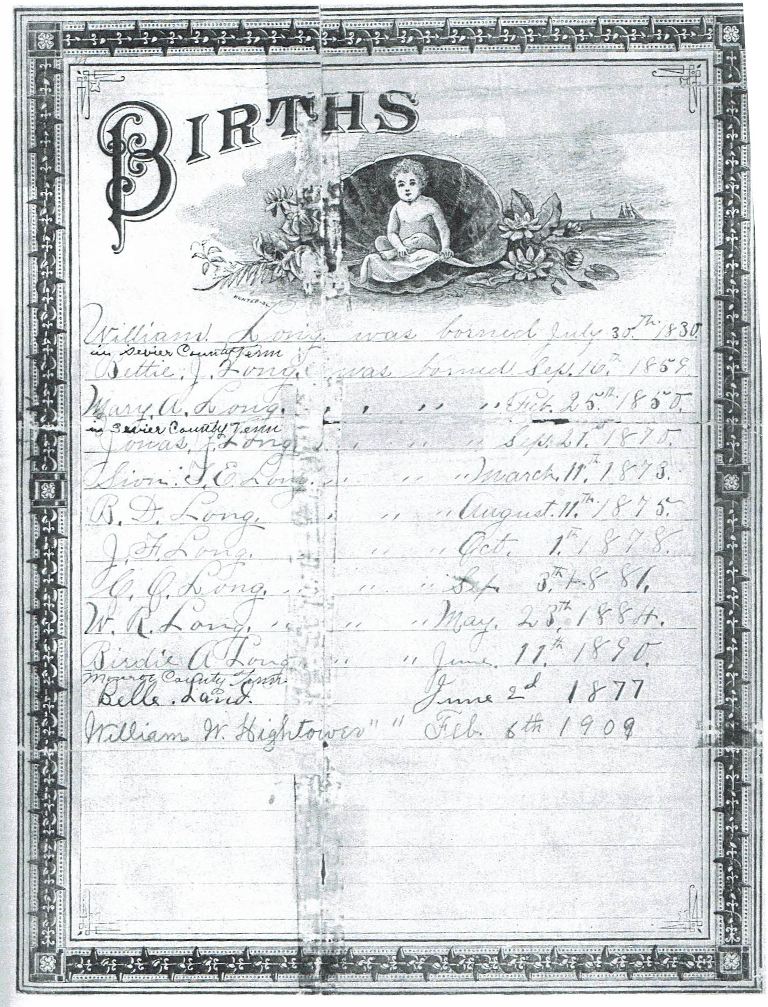 BIRTHS
William Long was borned July 30th 1830
in Sevier County Tenn
Bettie J. Long was borned Sep. 16th 1859
Mary A. Long. " " " Feb. 25th 1850.
in Sevier County Tenn
Jonas J. Long " " " Sep. 21st 1870.
Sion T. E. Long. " " " March. 11th 1873.
B. D. Long. " " " August. 11th 1875.
J. F. Long. " " " Oct. 1st 1878.
C. C. Long. " " " Sep. 3th 1881.
W. R. Long. " " " May. 23th 1884.
Birdie A Long " " " June. 11th 1890.
Monroe County Tenn.
Belle. Land. June 2d 1877
William W. Hightower " " Feb. 6th 1909